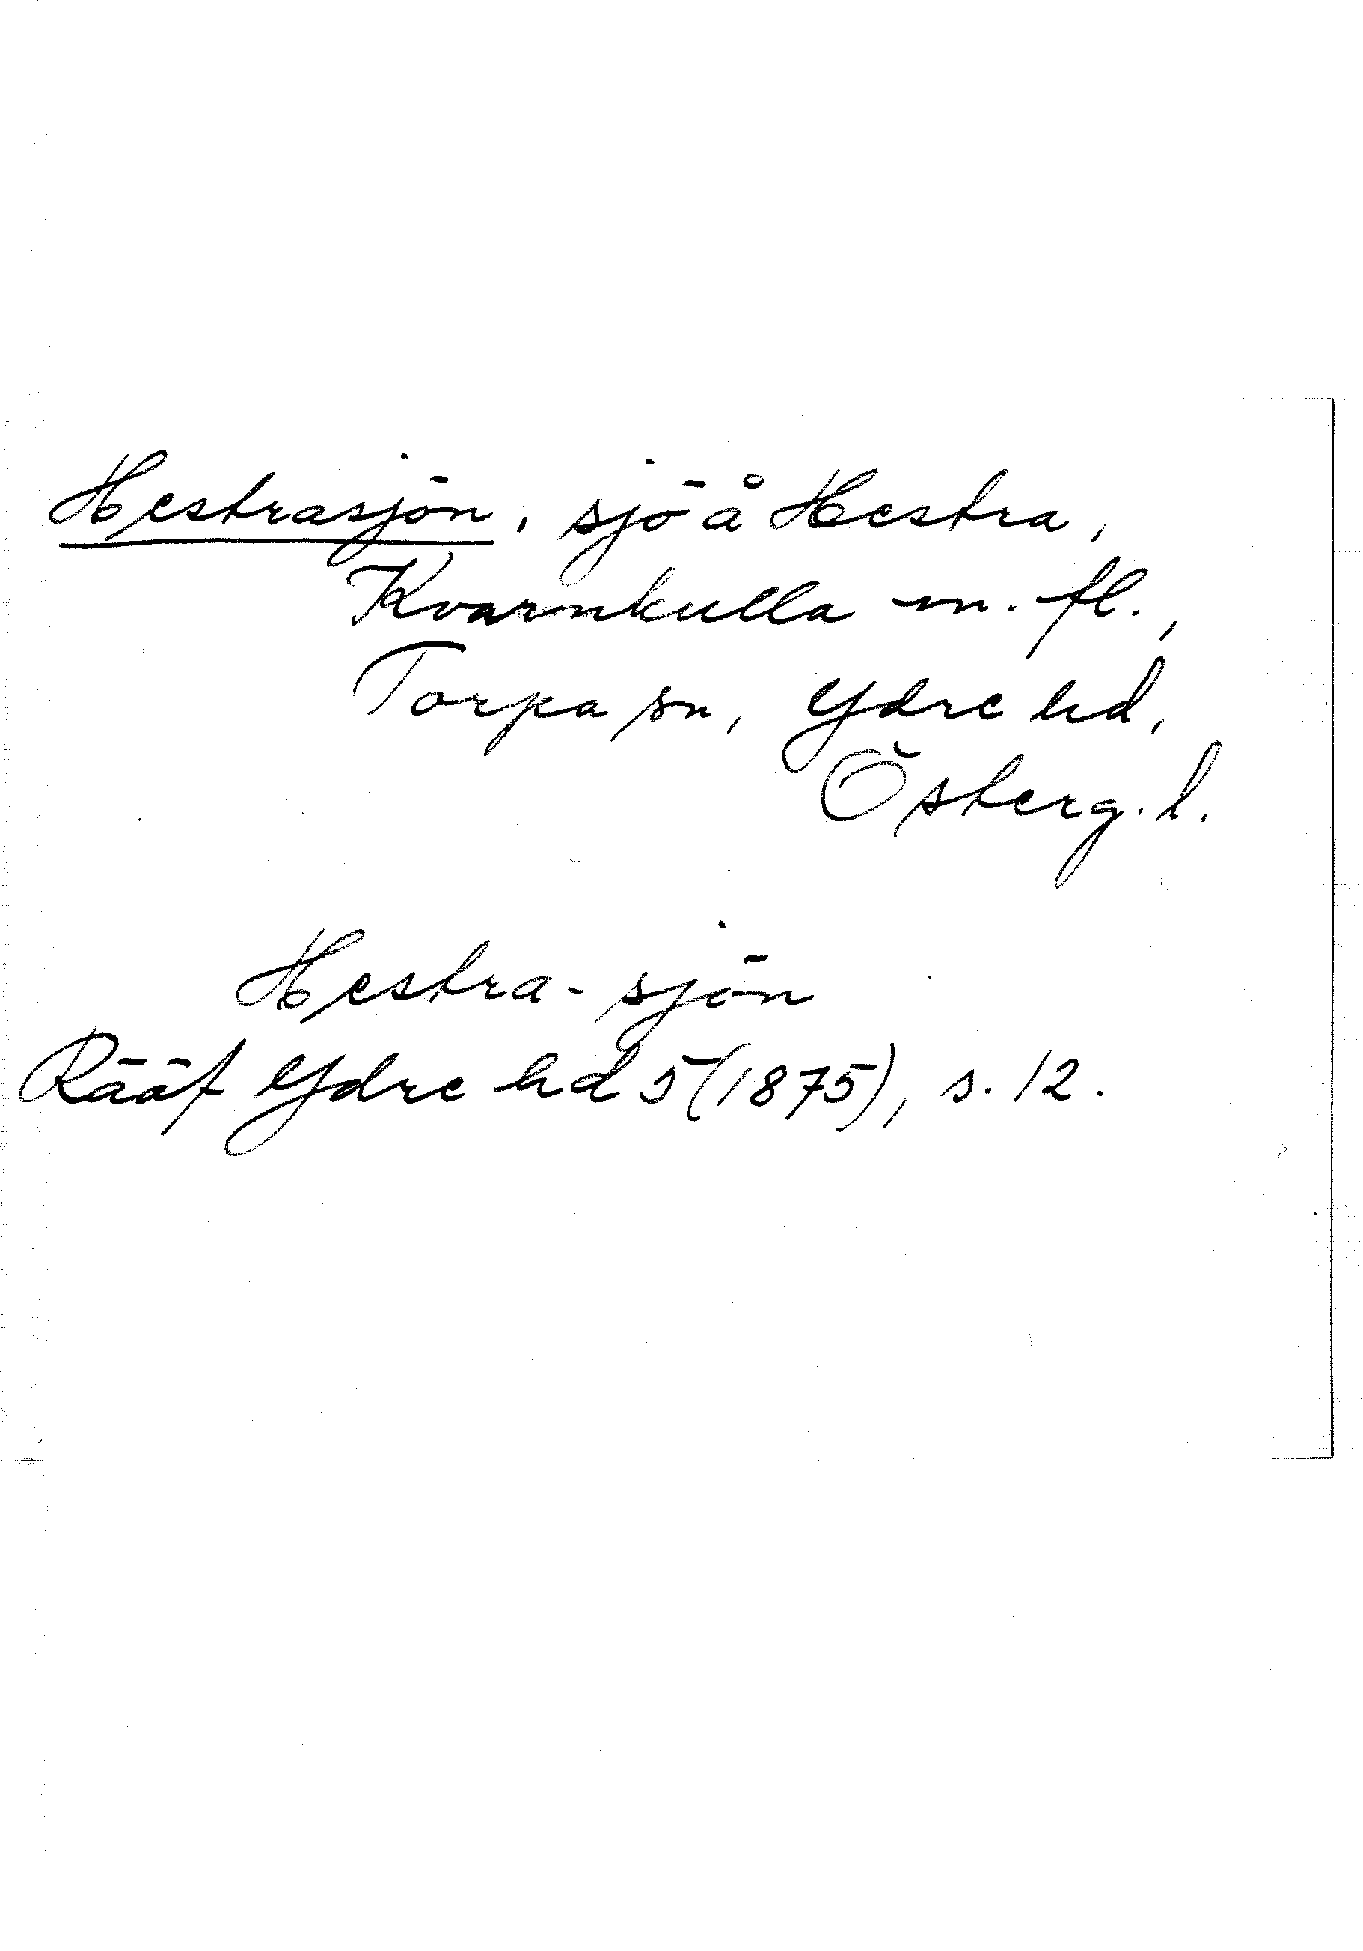 Hestrasjön, sjö å Hestra,
Kvarnkulla m. fl.,
Torpa sn, Ydre hd,
Österg. l.
Hestra-sjön
Rääf Ydre hd 5 (1875), s. 12.